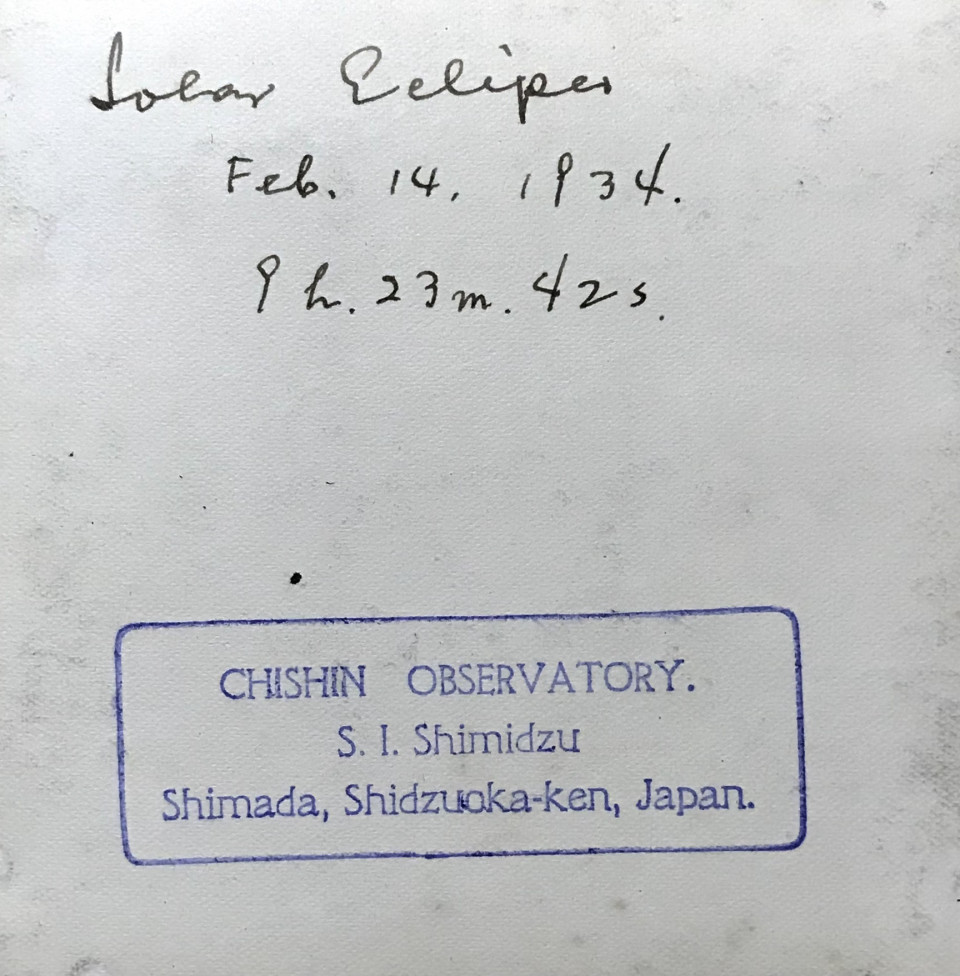 Solar Eclipes
Feb. 14. 1934.
9 h. 23 m. 42 s.
CHISHIN OBSERVATORY.
S. I. Shimidzu
Shimada, Shidzuoka-ken, Japan.